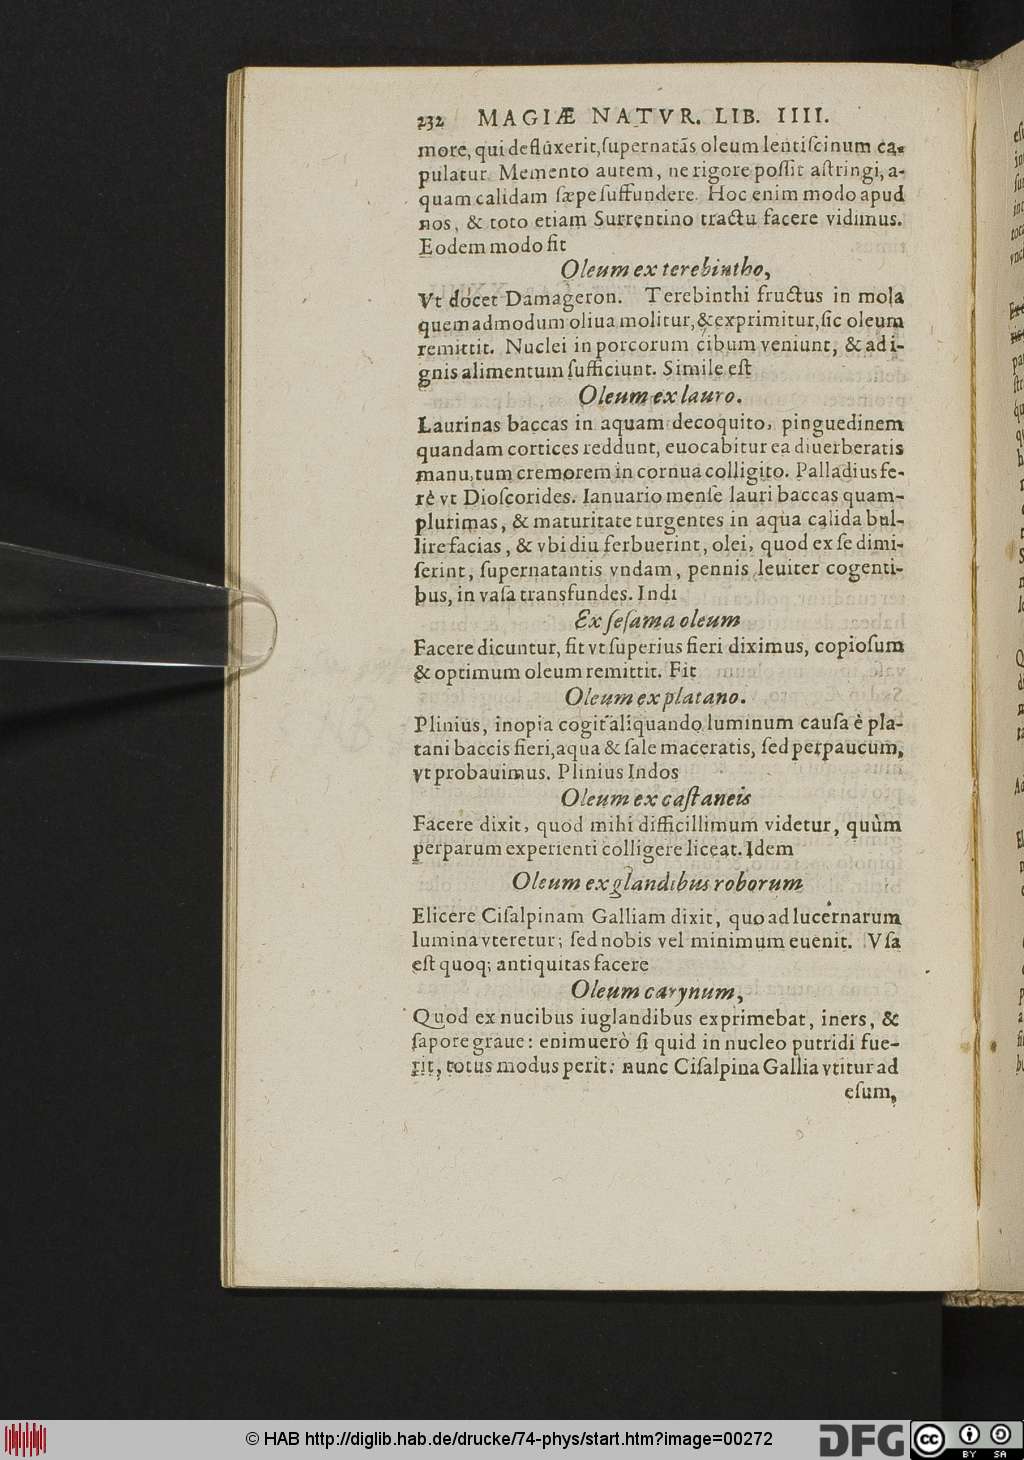 232 MAGIÆ NATVR. LIB. IIII.
more, qui deflûxerit, ſupernatãs oleum lentiſcinum ca-
pulatur. Memento autem, ne rigore poſſit aſtringi, a-
quam calidam ſæpe ſuffundere. Hoc enim modo apud
nos, & toto etiam Surrentino tractu facere vidimus.
Eodem modo fit
Oleum ex terebintho,
Vt docet Damageron. Terebinthi fructus in mola
quemadmodum oliua molitur, & exprimitur, ſic oleum
remittit. Nuclei in porcorum cibum veniunt, & ad i-
gnis alimentum ſufficiunt. Simile eſt
Oleum ex lauro.
Laurinas baccas in aquam decoquito, pinguedinem
quandam cortices reddunt, euocabitur ea diuerberatis
manu, tum cremorem in cornua colligito. Palladius fe-
rè vt Dioſcorides. Ianuario menſe lauri baccas quam-
plurimas, & maturitate turgentes in aqua calida bul-
lire facias, & vbi diu ferbuerint, olei, quod ex ſe dimi-
ſerint, ſupernatantis vndam, pennis leuiter cogenti-
bus, in vaſa transfundes. Indi
Ex ſeſama oleum
Facere dicuntur, fit vt ſuperius fieri diximus, copioſum
& optimum oleum remittit. Fit
Oleum ex platano.
Plinius, inopia cogit aliquando luminum cauſa è pla-
tani baccis fieri, aqua & ſale maceratis, ſed perpaucum,
vt probauimus. Plinius Indos
Oleum ex caſtaneis
Facere dixit, quod mihi difficillimum videtur, quùm
perparum experienti colligere liceat. Idem
Oleum ex glandibus roborum
Elicere Ciſalpinam Galliam dixit, quo ad lucernarum
lumina vteretur; ſed nobis vel minimum euenit. Vſa
eſt quoq; antiquitas facere
Oleum carynum,
Quod ex nucibus iuglandibus exprimebat, iners, &
ſapore graue: enimuerò ſi quid in nucleo putridi fue-
rit, totus modus perit: nunc Ciſalpina Gallia vtitur ad
eſum,
© HAB http://diglib.hab.de/drucke/74-phys/start.htm?image=00272
DFG
cc BY SA